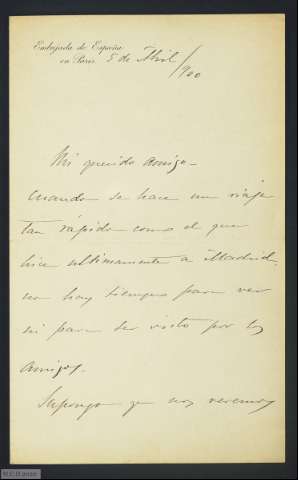 Embajada de España
en París
5 de Abril/900
Mi querido amigo-
Cuando se hace un viaje
tan rápido como el que
hice ultimamente a Madrid,
no hay tiempo para ver
ni para ser visto por los
amigos.
Supongo que nos veremos